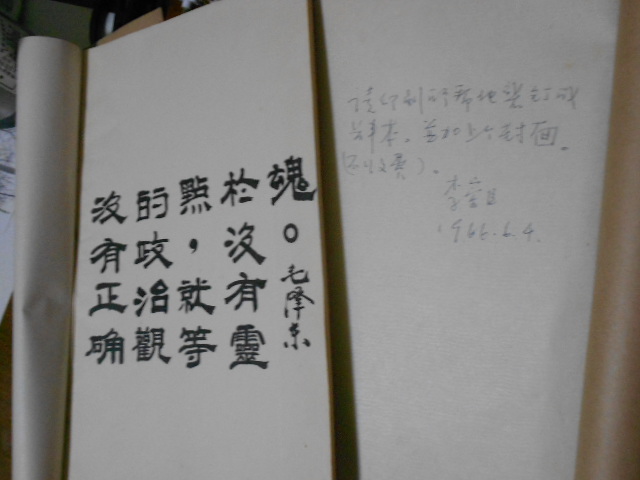 沒有正确
的政治觀
點，就等
於沒有靈
魂。
毛泽东
请印刷所帮他装订成
本，並加上个封面。
(不收费)。
李
1966.6.4.